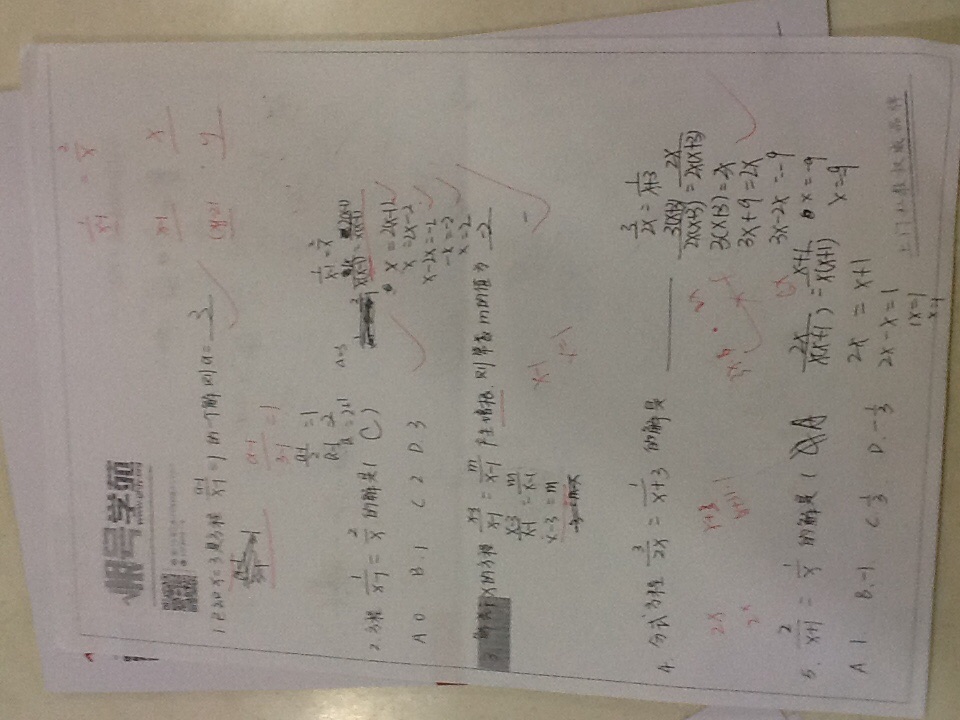 学苑
1/(x-1) = 2/x
x-1 x
y
1. 已知x=3是方程 (a-1)/(x-1) = 1 的一个解 则a= 3
(a-1)/(3-1) = 1
(a-1)/2 = 1
a-1 = 2
a = 2+1
A=3
2. 方程 1/(x-1) = 2/x 的解是( C )
A 0. B. 1 C 2 D. 3
1/(x-1) = 2/x
x/(x(x-1)) = 2(x-1)/(x(x-1))
x = 2(x-1)
x = 2x-2
x-2x = -2
-x = -2
x = 2
x的方程 (x-3)/(x-1) = m/(x-1) 产生增根, 则常数m的值为 -2
(x-3)/(x-1) = m/(x-1)
x-3 = m
x-1
x=1
4. 分式方程 3/(2x) = 1/(x+3) 的解是
3/(2x) = 1/(x+3)
3(x+3)/(2x(x+3)) = 2x/(2x(x+3))
3(x+3) = 2x
3x+9 = 2x
3x-2x = -9
x = -9
x = -9
2x x+3
2x
5. 2/(x+1) = 1/x 的解是( A
A 1. B. -1 C. 1/3 D. -1/3
2x/(x(x+1)) = (x+1)/(x(x+1))
2x = x+1
2x-x = 1
1x=1
x=1
上门私教权威品牌